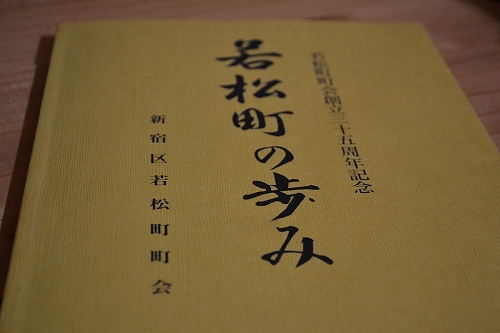 若松町町会創立三十五周年記念
若松町の歩み
新宿区若松町町会